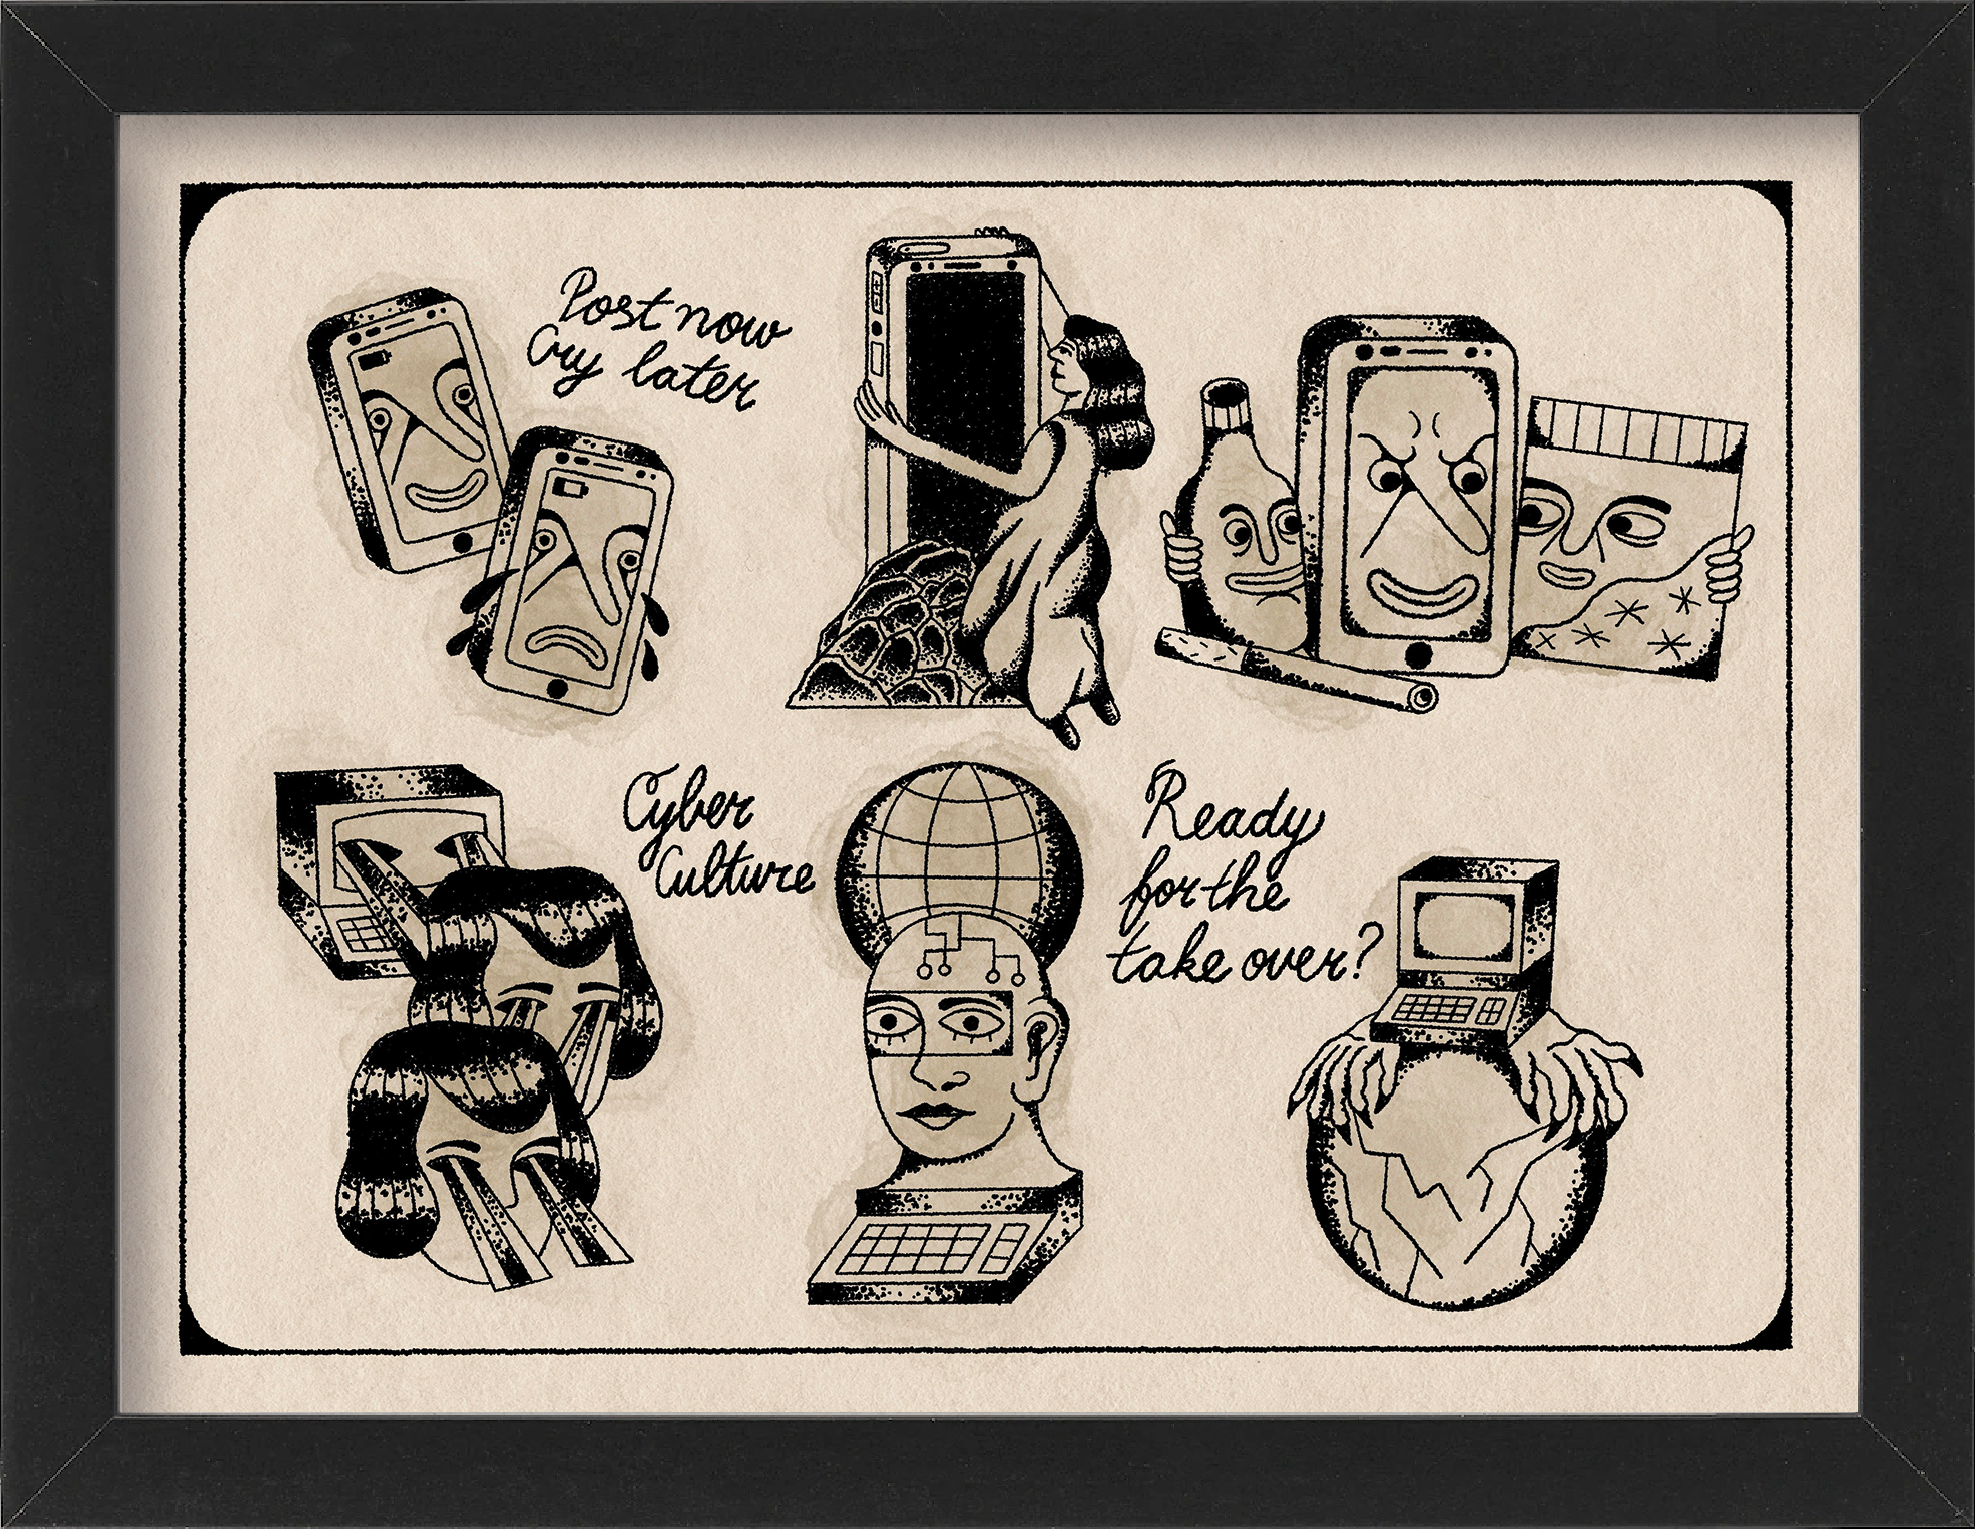 Post now
Cry later
Cyber
Culture
Ready
for the
take over?